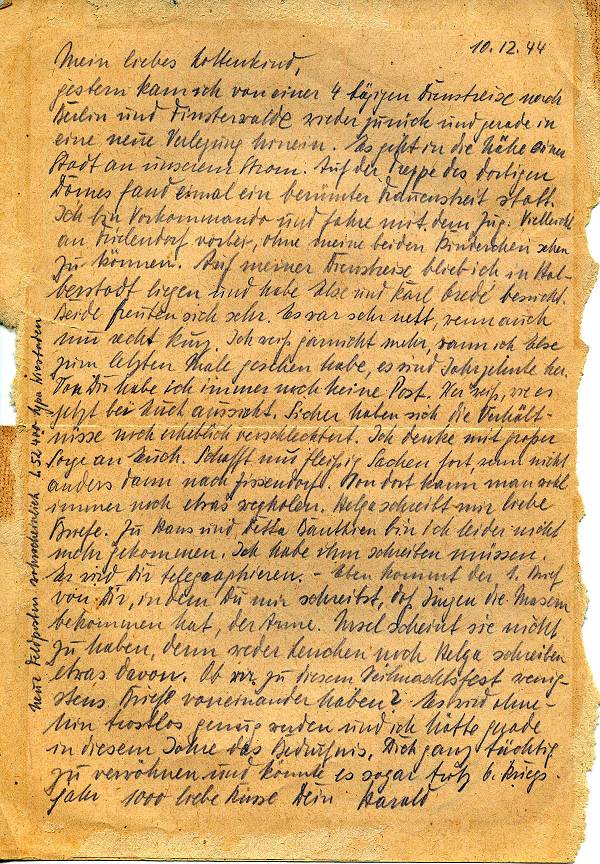 10.12.44
Mein liebes Lottenkind,
gestern kam ich von einer 4 tägigen Dienstreise nach
Berlin und Finsterwalde wieder zurück und gerade in
eine neue Verlegung hinein. Es geht in die Nähe einer
Stadt an unserem Strom. Auf der Treppe des dortigen
Domes fand eimal ein berümter Frauenstreit statt.
Ich bin Vorkommando und fahre mit dem Zug. Vielleicht
an vorbei, ohne meine beiden Kinderchen sehen
zu können. Auf meiner Dienstreise blieb ich in Hal-
berstadt liegen und habe Else und Karl besucht.
Beide freuten sich sehr. Es war sehr nett, wenn auch
nur recht kurz. Ich weiß garnicht mehr, wann ich Else
zum letzten Male gesehen habe, es sind Jahrzehnte her.
Von Dir habe ich immer noch keine Post. Wer weiß, wie es
jetzt bei Euch aussieht. Sicher haben sich die Verhält-
nisse noch erheblich verschlechtert. Ich denke mit großer
Sorge an Euch. Schafft nur fleißig Sachen fort, wenn nicht
anders dann nach. Von dort kann man wohl
immer noch etwas wegholen. Helga schreibt mir liebe
Briefe. Zu Hans und bin ich leider nicht
mehr gekommen. Ich habe ihm schreiben müssen.
Er wird Dir telegraphieren. – Eben kommt der 1. Brief
von Dir, in dem Du mir schreibst, daß Jürgen die Masern
bekommen hat, der Arme. Ursel scheint sie nicht
zu haben, denn weder Lenchen noch Helga schreiben
etwas davon. Ob wir zu diesem Weihnachtsfest wenig-
stens Briefe voneinander haben? Es wird ohne-
hin trostlos genug werden und ich hätte gerade
in diesem Jahre das Bedürfnis, Dich ganz tüchtig
zu verwöhnen und könnte es sogar trotz 6. Kriegs-
jahr 1000 liebe Küsse Dein Harald
Neue Feldpostnr wahrscheinlich L 52 400 Lgpa Wiesbaden